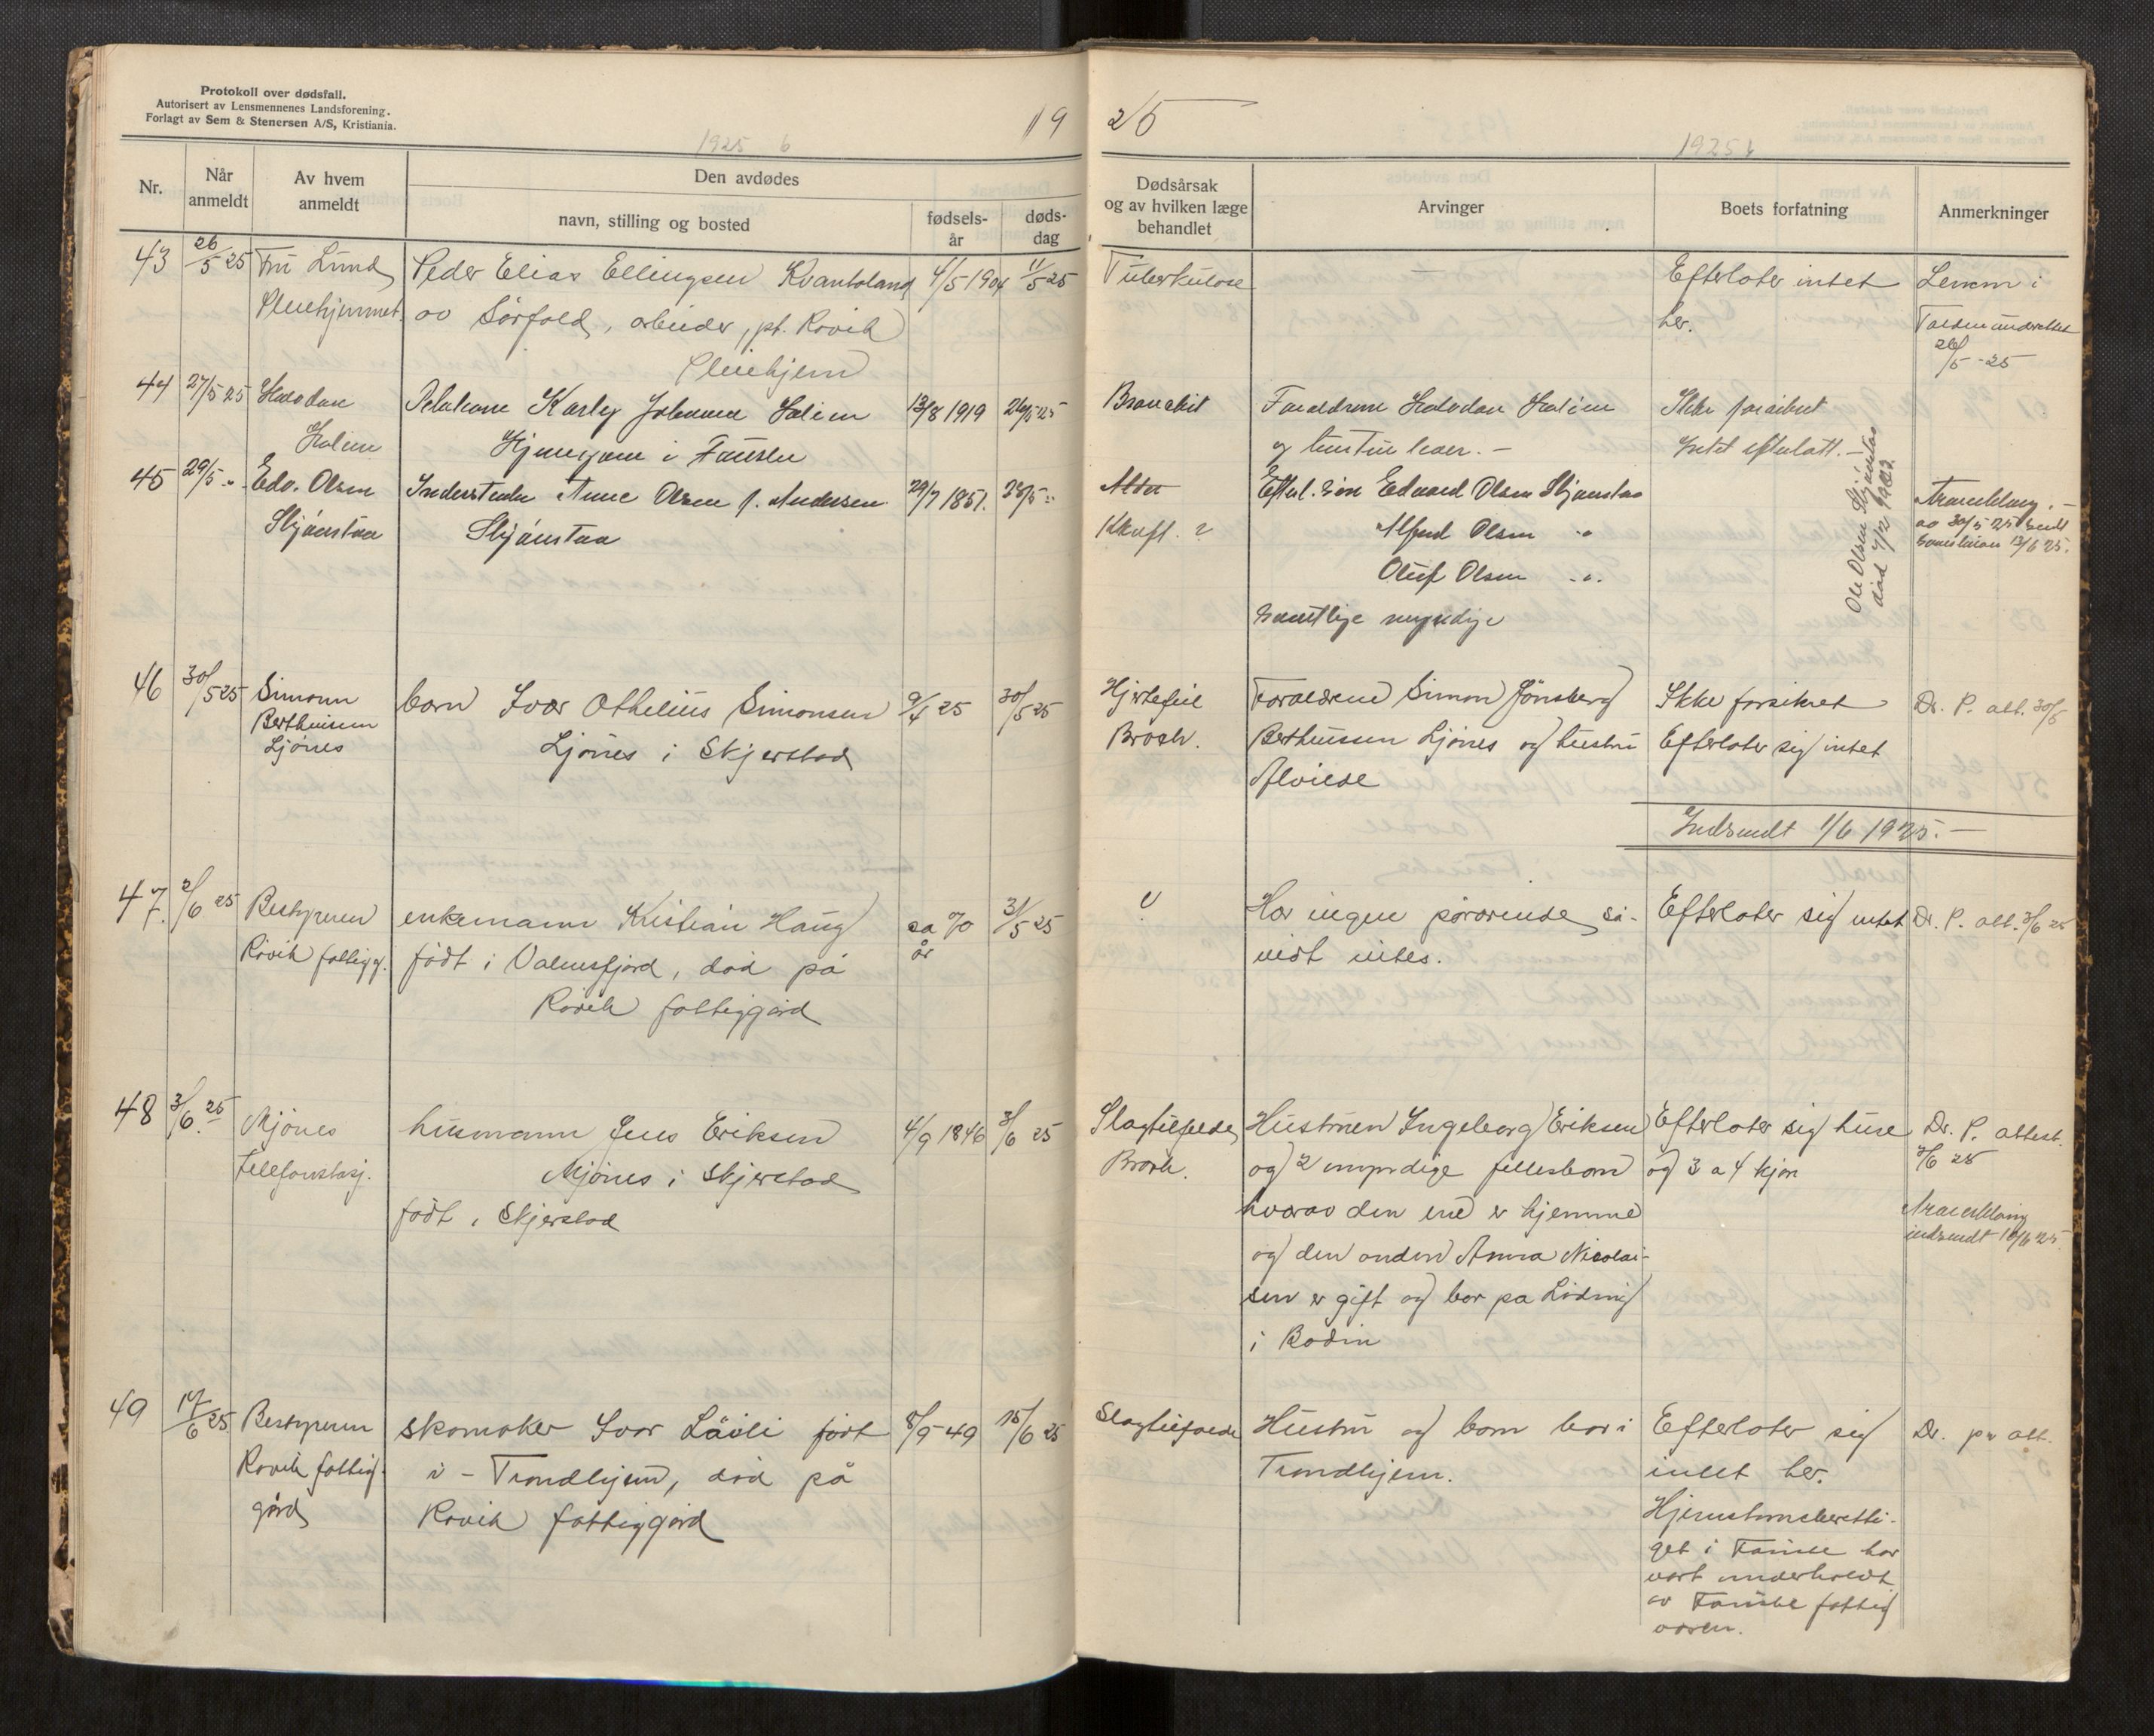 Protokoll over dødsfall.
Autorisert av Lensmennenes Landsforening.
Forlagt av Sem & Stenersen A/S, Kristiania.
19 25
1925 6
1925 6
Nr.
Når anmeldt
Av hvem anmeldt
Den avdødes
navn, stilling og bosted
fødsels-år
døds-dag
Dødsårsak
og av hvilken læge
behandlet
Arvinger
Boets forfatning
Anmerkninger
43 26/5 25 Fru Lund Peder Elias Ellingsen Kvantoland 4/5 1904 11/5 25 Tuberkulose — Efterlater intet Lensm i
Pleiehjemmet. av Sørfold, arbeider, pt. Røvik her. Folden underrettet
Pleiehjem 26/5-25
44 27/5 25 Halvdan Johanna Solim 13/8 1919 26/5 25 Bronchit Forældrene Halvdan Ikke forsikret
i Fauske og hustru lever. — Intet efterlatt. —
45 29/5 " Edv. Olsen Anne Olsen f. Andersen 29/7 1851. 28/5 " Alder Efterl. søn Edvard Olsen Skjønstaa
Skjønstaa Skjønstaa Kræft. ? Alfred Olsen "
Oluf Olsen " .
samtlige myndige
Ole Olsen Skjønstaa
død 4/2 1922.
av 30/5 25 sendt
13/6 25.
46 30/5 25 Simonn barn Ivar Othelius Simonsen 9/4 25 30/5 25 Hjertefeil Forældrene Simon Jønsberg Ikke forsikret Dr. P. att. 30/5
Berthinsen Ljønes i Skjerstad Broch. Berthinsen Ljønes og hustru Efterlater sig intet
Ljønes Alvilde
Indsendt 1/6 1925. —
47. 2/6 25 Bestyreren enkemann Kristian Haug ca 70 31/5 25 ? Har ingen pårørende så- Efterlater sig intet Dr. P. att. 2/6 25
Røvik fattigg. født i Valnesfjord, død på år vidt vites.
Røvik fattiggård
48 3/6 25 Mjønes husmann Jens Eriksen 4/9 1846 3/6 25 Slagtilfelde Hustruen Ingeborg Eriksen Efterlater sig huse Dr. P. attest.
Telefonstasj. Mjønes i Skjerstad Broch. og 2 myndige fellesbarn og 3 a 4 kjør 3/6 25
født i Skjerstad hvorav den ene er hjemme
og den anden Anna Nicolai-
sen er gift og bor på Løding
i Bodin
indsendt 18/6 25.
49 17/6 25. Bestyreren skomaker Ivar Låvli født 8/9-49 15/6 25 Slagtilfælde Hustru og barn bor i Efterlater sig Dr. P. att.
Røvik fattig- i - Trondhjem, død på Trondhjem. intet her.
gård Røvik fattiggård Hjemstavnsberetti-
get i Fauske har
vært underholdt
av Fauske fattig
væsen.